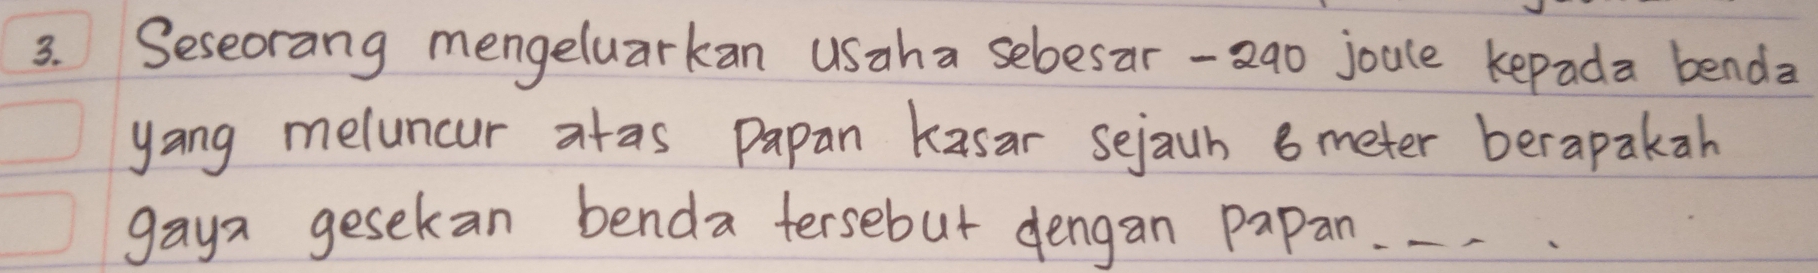 3. Seseorang mengeluarkan usaha sebesar -290 joule kepada benda
yang meluncur atas papan kasar sejauh 6 meter berapakah
gaya gesekan benda tersebut dengan papan.... .